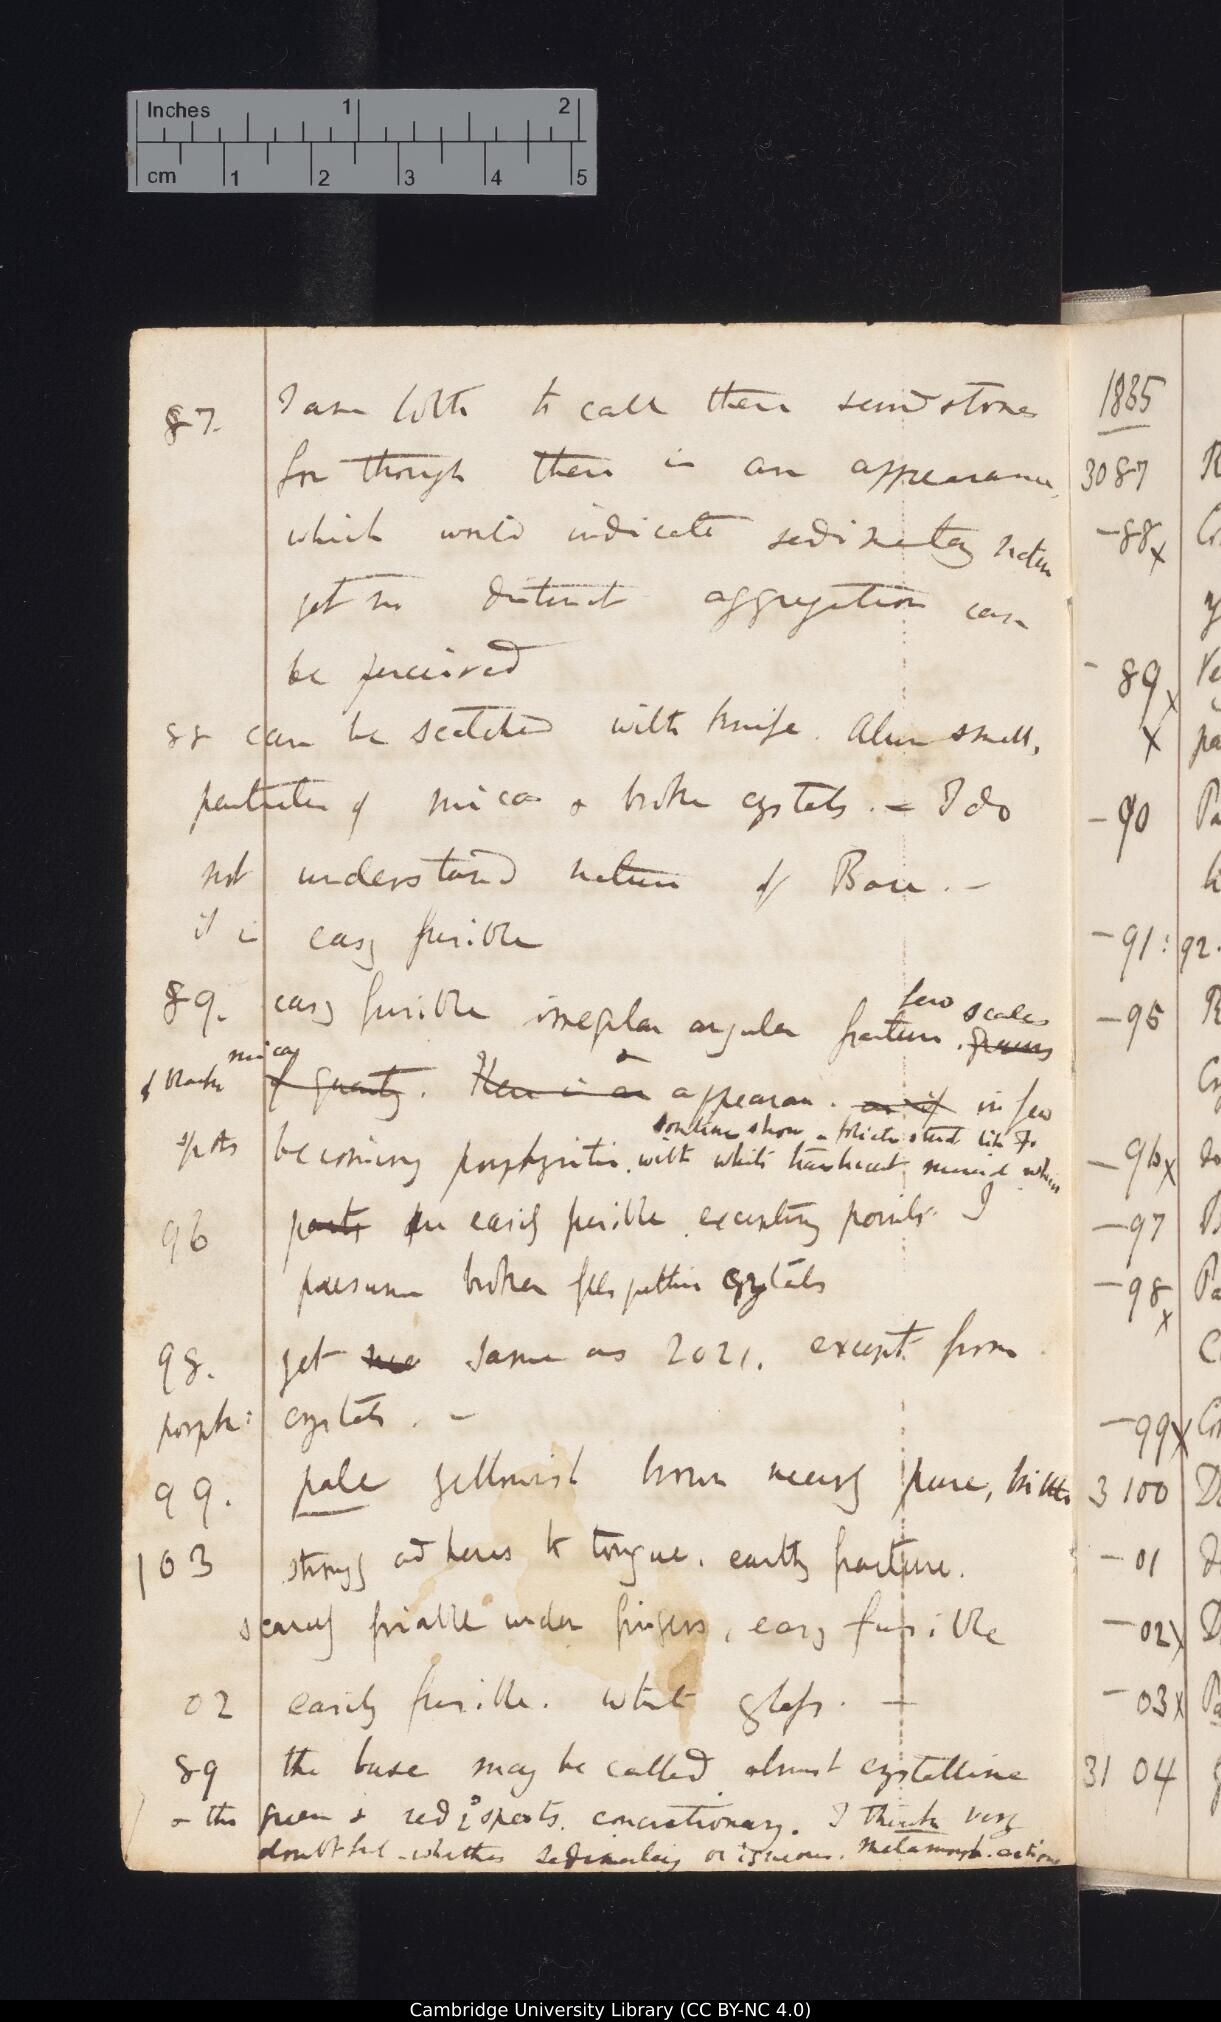 Inches 1 2
cm 1 2 3 4 5
87. I am loth to call them sandstones
for though there is an appearance,
which would indicate sedimetary natur
yet no distinct aggregation can
be perceived
88 can be scatched with knife. Alum smell,
particles of mica & broke cystals. — I do
not understand nature of Base. —
it is easy fusible
few scales
89. easy fusible irregular angular fracture. grains
of black mica of quartz. Here is an & appearan. as if in few
spots becoming porphyritic. with white translucent
96 parts are easily fusible, excepting points. I
presume broken felspathic crystals
98. yet same as 2021. except from
porph: crystals. —
99. pale yellowish brown nearly pure, brittle
103 strongy adheres to tongue. earthy fracture.
scarcely friable under fingers, easy fusible
02 easily fusible. white glass. —
89 the base may be called almost crystalline
& the green & red spots. concretionary. I think very
doubtful whether sedimentary or igneous. Metamorph. action
1835
3087
—88x
—89x
x
—90
—91: 92.
—95
—96x
—97
—98x
—99x
3100
—01
—02x
—03x
3104
Cambridge University Library (CC BY-NC 4.0)